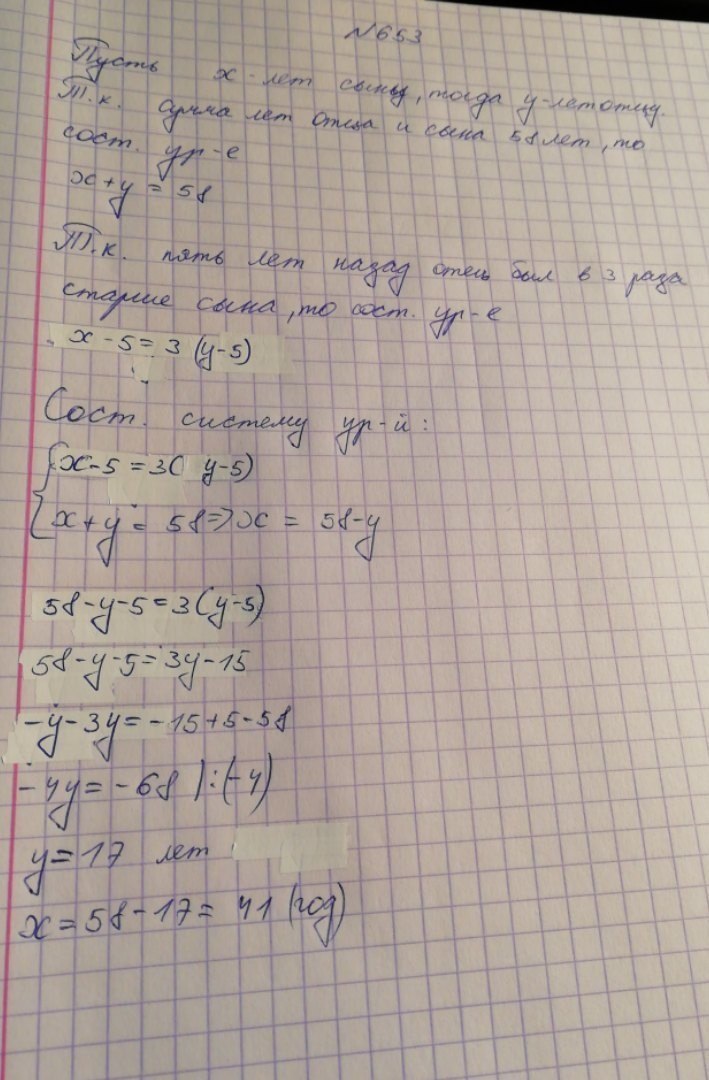 №653
Пусть х - лет сыну, тогда у-лет отцу.
Т.к. сумма лет отца и сына 58 лет, то
сост. ур-е
х+у = 58
Т.к. пять лет назад отец был в 3 раза
старше сына, то сост. ур-е
х - 5 = 3 (у-5)
Сост. систему ур-й:
{х-5 = 3( у-5)
х+у = 58 => х = 58-у
58-у-5=3(у-5)
58-у-5=3у-15
-у-3у=-15+5-58
-4у=-68 |:(-4)
у=17 лет
х=58-17= 41 (год)